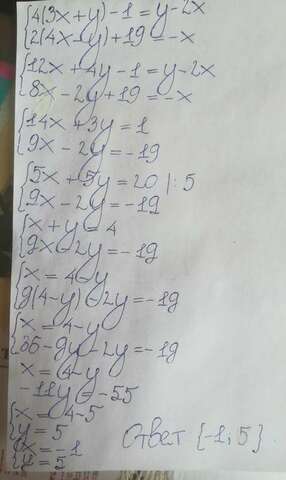 {4(3x+y)-1=y-2x
{2(4x-y)+19=-x
{12x+4y-1=y-2x
{8x-2y+19=-x
{14x+3y=1
{9x-2y=-19
{5x+5y=20 |:5
{9x-2y=-19
{x+y=4
{9x-2y=-19
{x=4-y
{9(4-y)-2y=-19
{x=4-y
{36-9y-2y=-19
x=4-y
-11y=-55
{x=4-5
{y=5
{x=-1
{y=5
Ответ {-1;5}